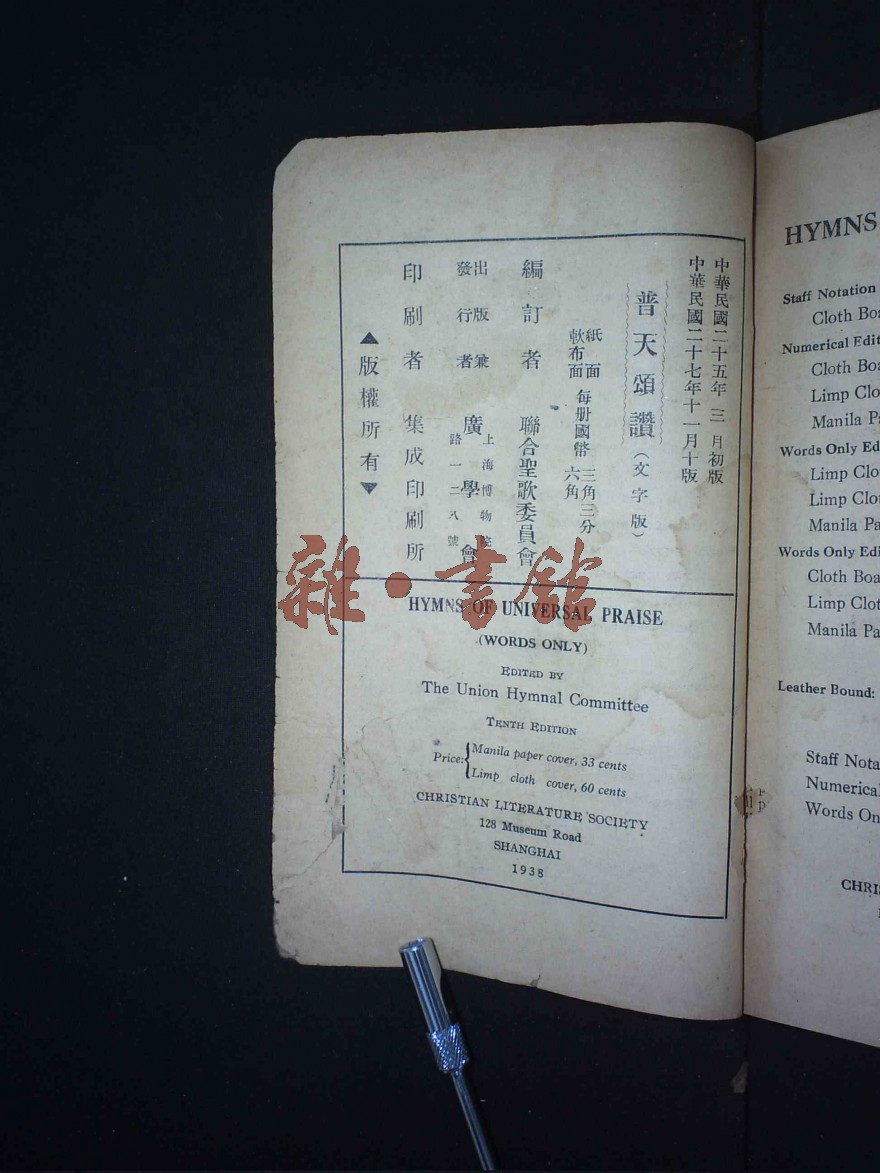 中華民國二十五年三月初版
中華民國二十七年十一月十版
普天頌讚(文字版)
紙面 每册國幣 三角三分
軟布面 六角
編訂者 聯合聖歌委員會
出版兼發行者 廣學會
上海博物院路一二八號
印刷者 集成印刷所
▲版權所有▼
雜·書館
HYMNS OF UNIVERSAL PRAISE
(WORDS ONLY)
EDITED BY
The Union Hymnal Committee
TENTH EDITION
Price: Manila paper cover, 33 cents
Limp cloth cover, 60 cents
CHRISTIAN LITERATURE SOCIETY
128 Museum Road
SHANGHAI
1938
HYMNS
Staff Notation
Cloth Boa
Numerical Edit
Cloth Boa
Limp Clo
Manila Pa
Words Only Ed
Limp Clo
Limp Clo
Manila Pa
Words Only Edi
Cloth Boa
Limp Clot
Manila Pa
Leather Bound:
Staff Nota
Numerical
Words On
CHRIS